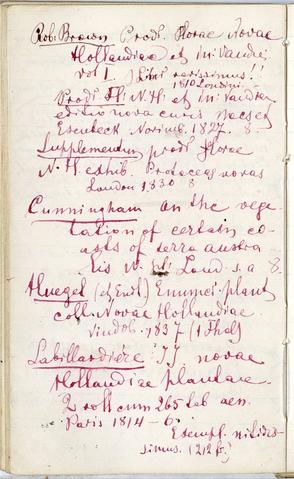 Rob. Brown Prodr. florae Novae
Hollandiae et ins. Vandie.
vol I. Liber rarissimus!!
1810 Londini
Prodr. fl. N. H. et ins. Van Diem.
editio nova curis Nees
Esenbeck Norimb. 1827. 8.
Supplementum prodr. florae
N. H. exhib. Proteaceas novas
London 1830 8
Cunningham on the vege
tation of certain co-
asts of terra austra
lis N. H. Lond. s. a 8.
Huegel (et Endl.) Enumer. plant
coll. Novae Hollandiae.
Vindob. 1837 (1 thal)
Labillardière JJ novae
Hollandiae plantae
2 voll cum 265 tab aen.
Paris 1814-6
Exempl. nitidis-
simus. (212 fr.)